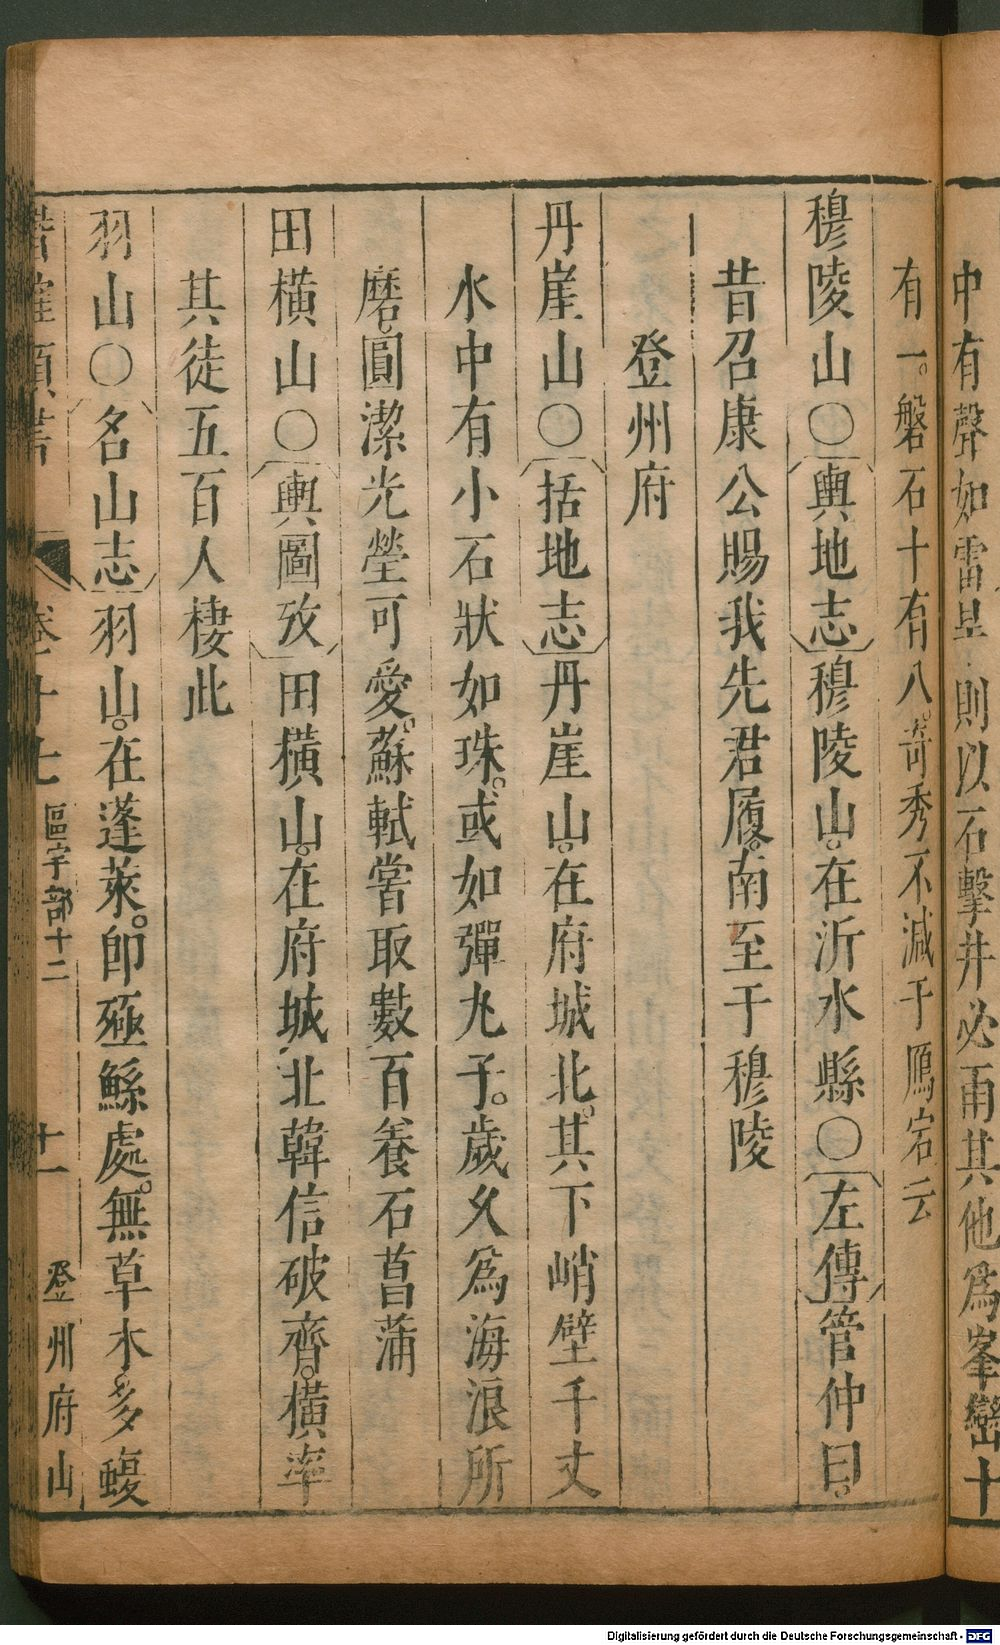 中有聲如雷旱則以石擊井必雨其他爲峯巒十
有一磐石十有八奇秀不減于鴈宕云
穆陵山○輿地志穆陵山在沂水縣○左傳管仲曰
昔召康公賜我先君履南至于穆陵
登州府
丹崖山○括地志丹崖山在府城北其下峭壁千丈
水中有小石狀如珠或如彈丸子歲久爲海浪所
磨圓潔光瑩可愛蘇軾嘗取數百養石菖蒲
田橫山○輿圖攷田橫山在府城北韓信破齊橫率
其徒五百人棲此
羽山○名山志羽山在蓬萊卽殛鯀處無草木多蝮
卷二十七 區宇部十二 十一 登州府山
Digitalisierung gefördert durch die Deutsche Forschungsgemeinschaft - DFG